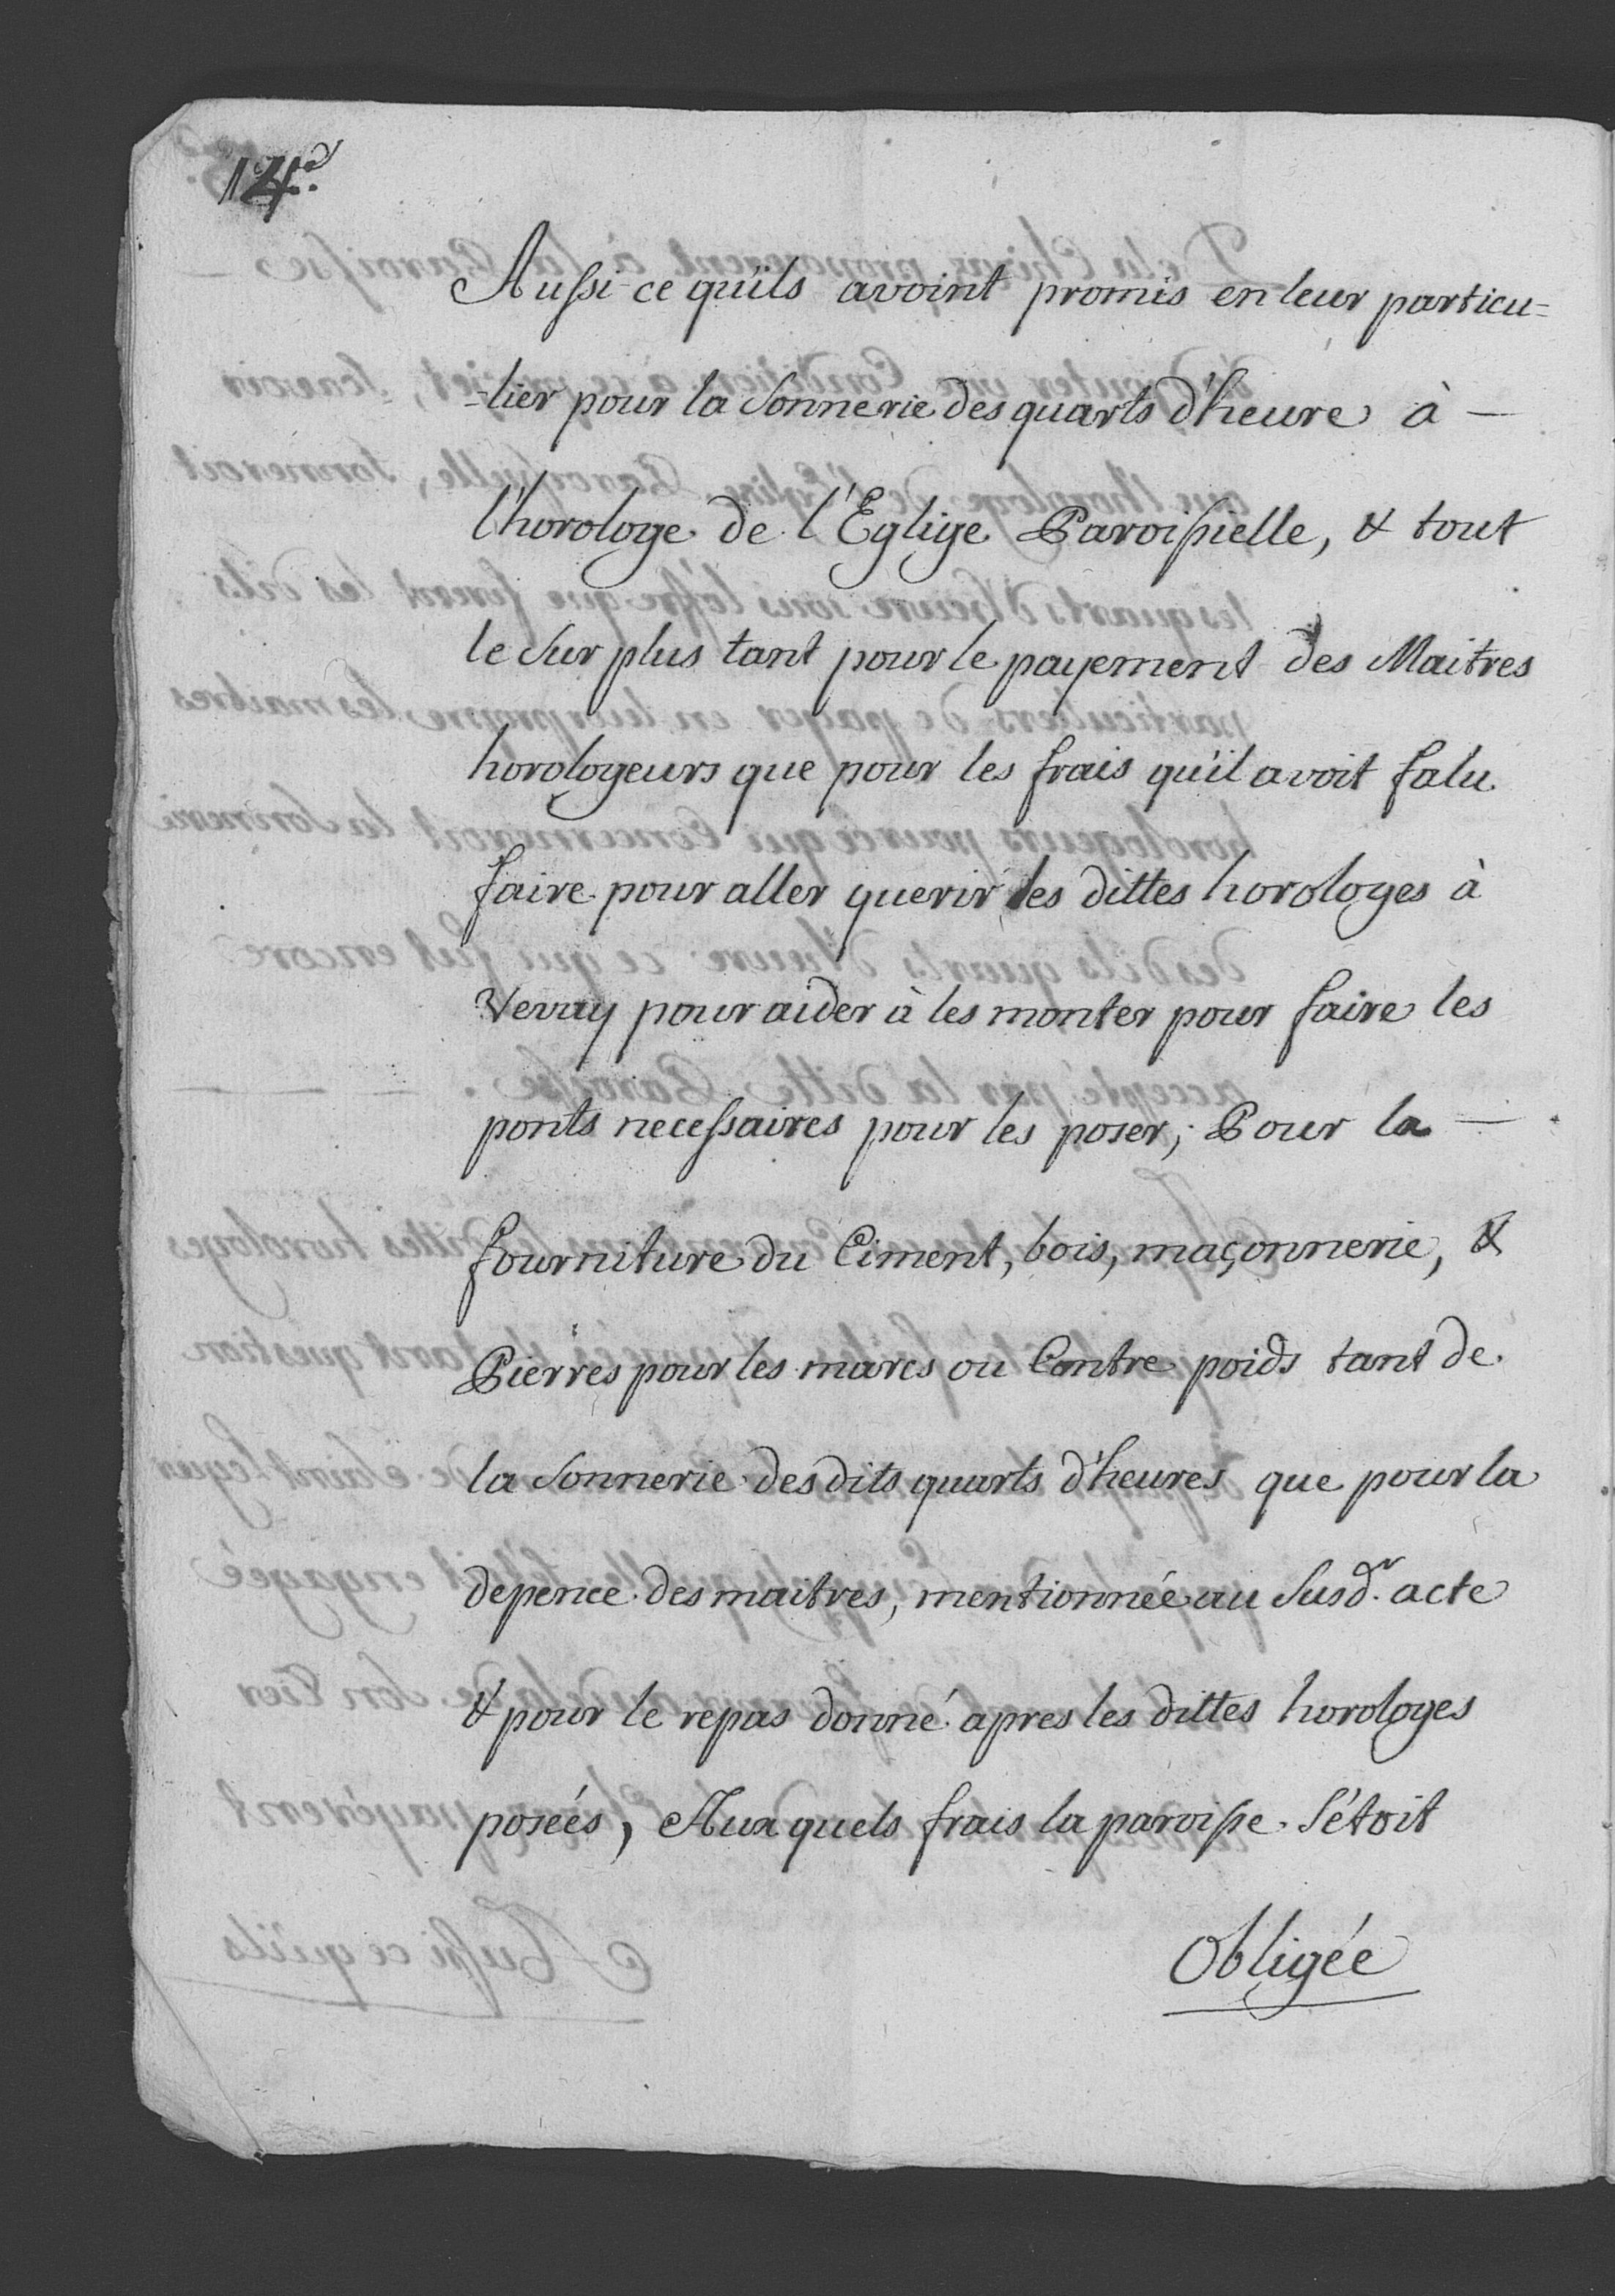 Aussi ce qu'ils avoint promis en leur particu=
=lier pour la Sonnerie des quarts d'heure à —
l'horologe de l'Eglige Paroissielle, & tout
le Sur plus tant pour le payement des Maitres
horologeurs que pour les frais qu'il avoit falu
faire pour aller querir les dittes horologes à
Vevay pour aider à les monter pour faire les
ponts necessaires pour les poser; Pour la —
fourniture du Ciment, bois, maçonnerie, &
Pierres pour les marcs ou Contre poids tant de
la Sonnerie des dits quarts d'heures que pour la
depence des maitres, mentionnée au Susd.t acte
& pour le repas donné apres les dittes horologes
poseés, Aux quels frais la paroisse S'étoit
Obligée